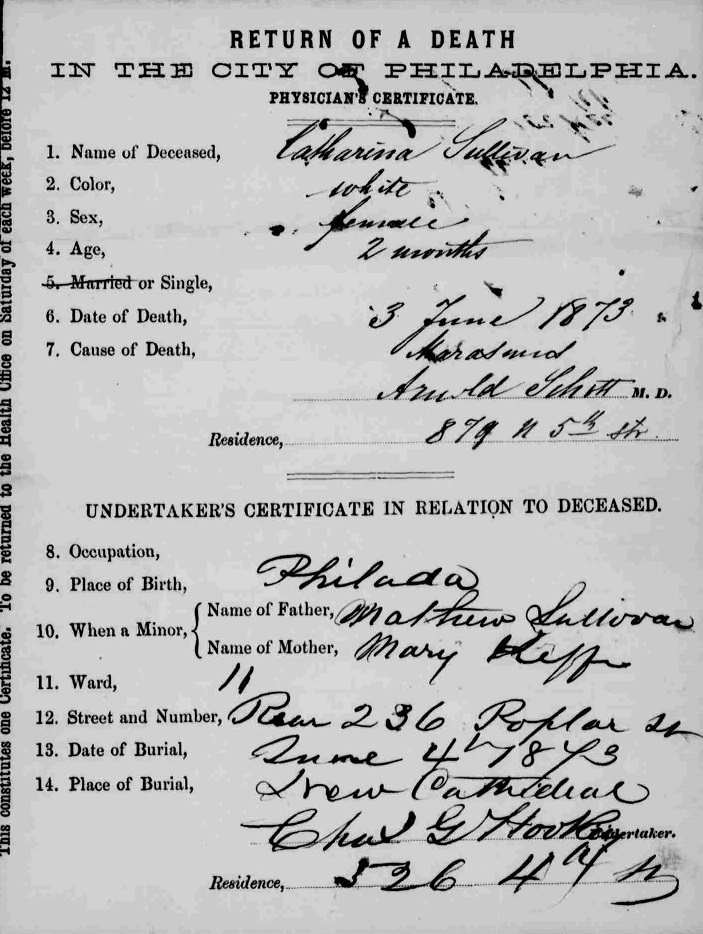 RETURN OF A DEATH
IN THE CITY OF PHILADELPHIA.
PHYSICIAN'S CERTIFICATE.
1. Name of Deceased, Catharina Sullivan
2. Color, white
3. Sex, female
4. Age, 2 months
5. Married or Single,
6. Date of Death, 3 June 1873
7. Cause of Death, Marasmus
Arnold Schott M. D.
Residence, 879 N 5th str.
UNDERTAKER'S CERTIFICATE IN RELATION TO DECEASED.
8. Occupation,
9. Place of Birth, Philada
10. When a Minor,
Name of Father, Mathew Sullivan
Name of Mother, Mary
11. Ward, 11
12. Street and Number, Rear 236 Poplar st
13. Date of Burial, June 4th 1873
14. Place of Burial, New Cathedral
Chas G Hookey Undertaker.
Residence, 526 4th st
This constitutes one Certificate. To be returned to the Health Office on Saturday of each week, before 12 M.